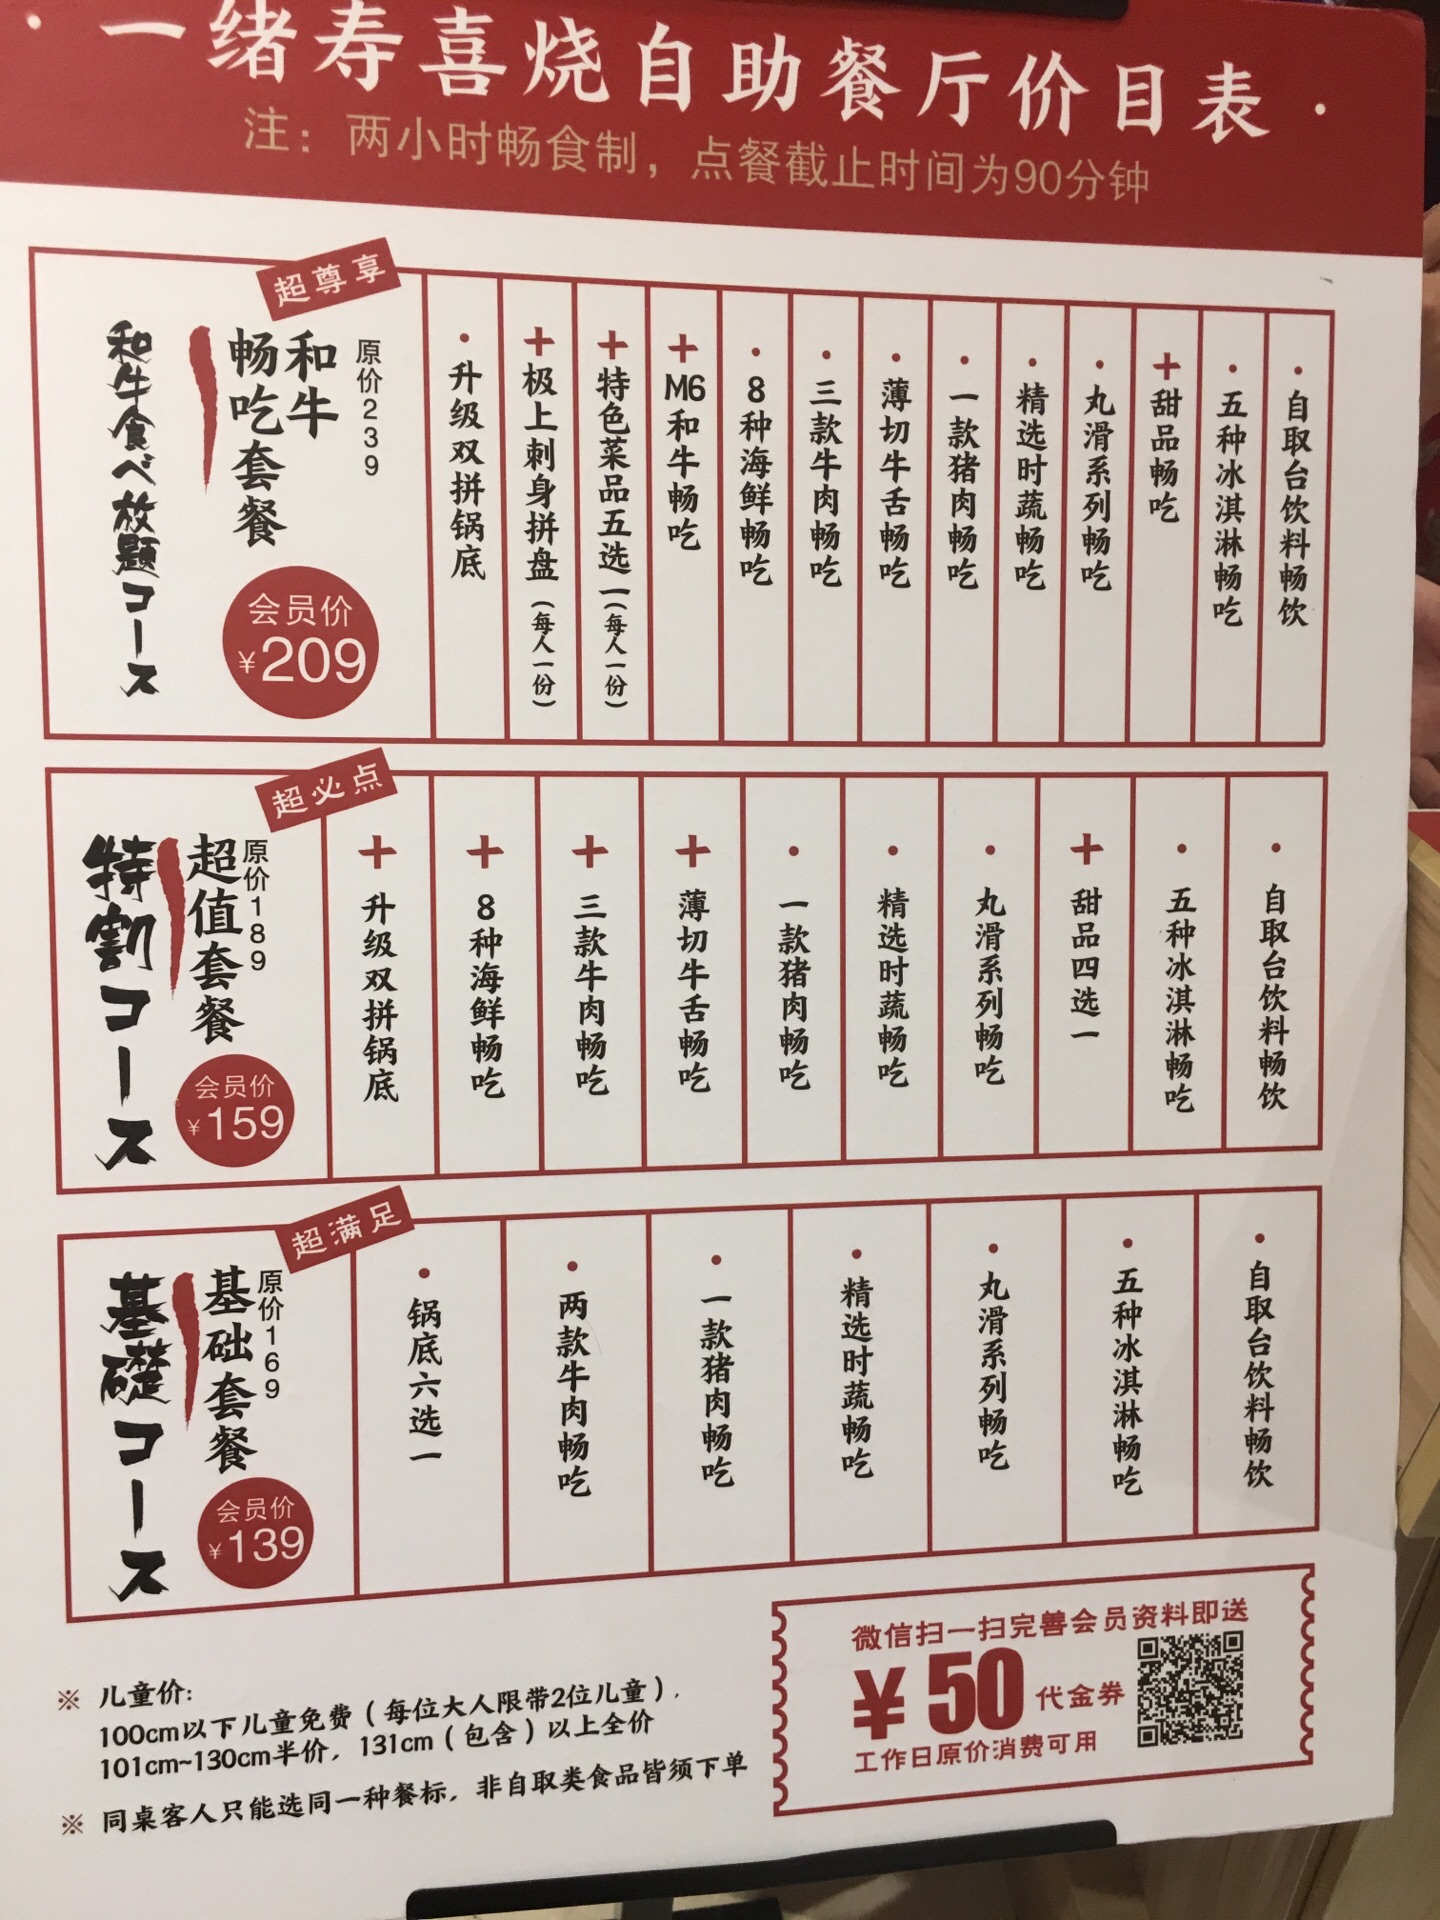 ·一绪寿喜烧自助餐厅价目表·
注：两小时畅食制，点餐截止时间为90分钟
超尊享
和牛食べ放題コース
和牛
畅吃套餐
原价239
会员价
¥209
·升级双拼锅底
+极上刺身拼盘（每人一份）
+特色菜品五选一（每人一份）
+M6和牛畅吃
·8种海鲜畅吃
·三款牛肉畅吃
·薄切牛舌畅吃
·一款猪肉畅吃
·精选时蔬畅吃
·丸滑系列畅吃
+甜品畅吃
·五种冰淇淋畅吃
·自取台饮料畅饮
超必点
特割コース
超值套餐
原价189
会员价
¥159
+升级双拼锅底
+8种海鲜畅吃
+三款牛肉畅吃
+薄切牛舌畅吃
·一款猪肉畅吃
·精选时蔬畅吃
·丸滑系列畅吃
+甜品四选一
·五种冰淇淋畅吃
·自取台饮料畅饮
超满足
基礎コース
基础套餐
原价169
会员价
¥139
·锅底六选一
·两款牛肉畅吃
·一款猪肉畅吃
·精选时蔬畅吃
·丸滑系列畅吃
·五种冰淇淋畅吃
·自取台饮料畅饮
※ 儿童价：
100cm以下儿童免费（每位大人限带2位儿童），
101cm~130cm半价，131cm（包含）以上全价
※ 同桌客人只能选同一种餐标，非自取类食品皆须下单
微信扫一扫完善会员资料即送
¥50代金券
工作日原价消费可用